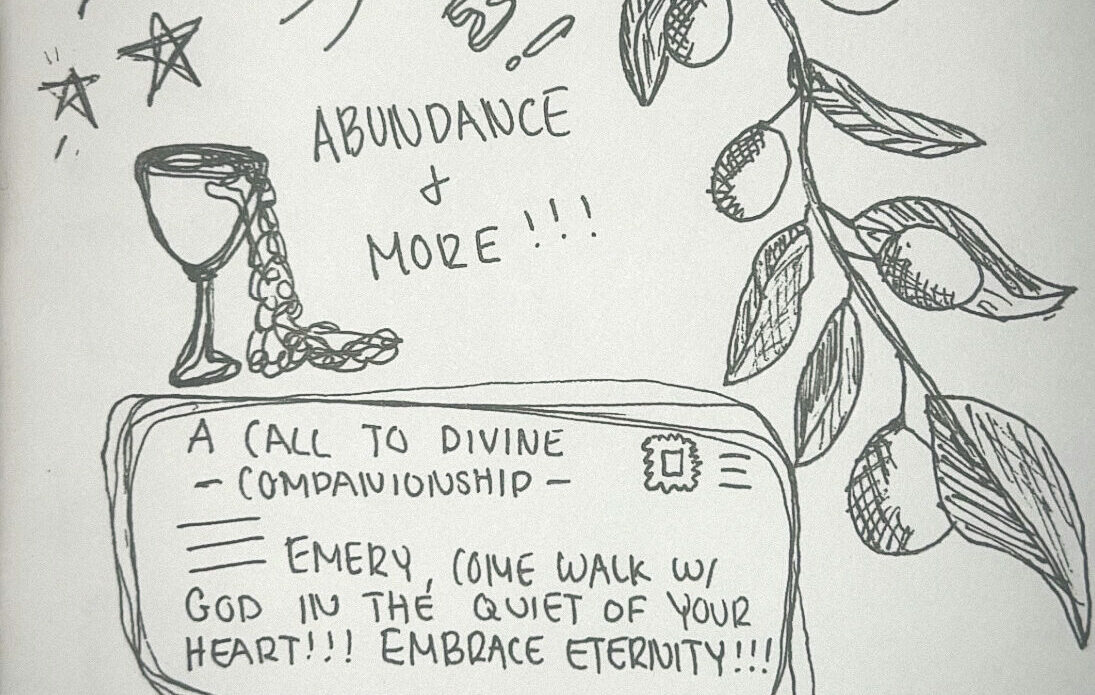 ABUNDANCE
&
MORE!!!
A CALL TO DIVINE
- COMPANIONSHIP -
EMERY, COME WALK W/
GOD IN THE QUIET OF YOUR
HEART!!! EMBRACE ETERNITY!!!